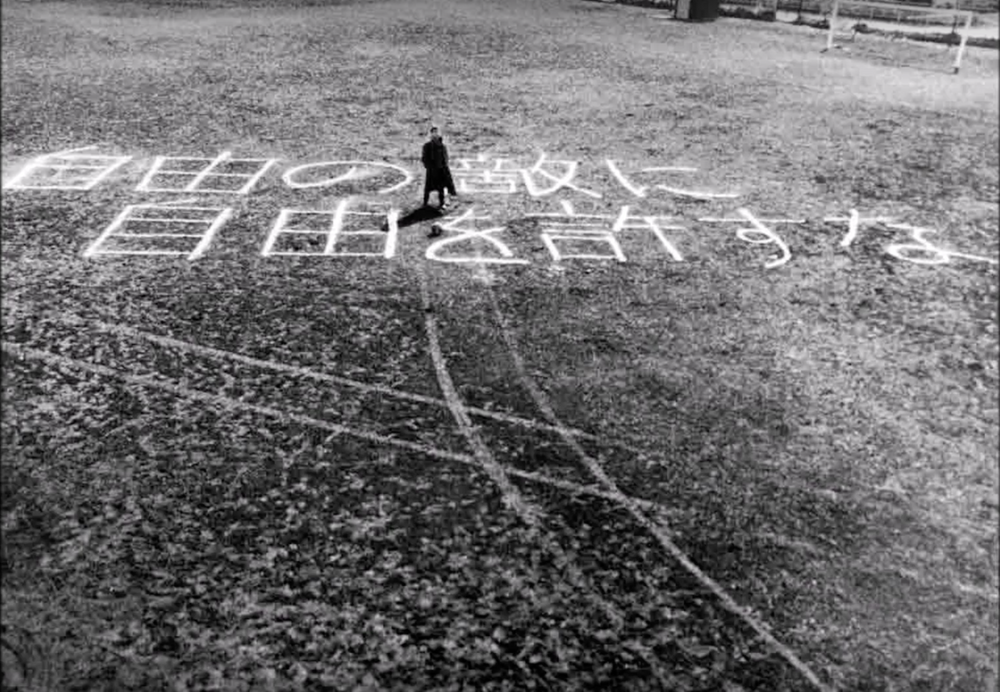 自由の敵に
自由を許すな